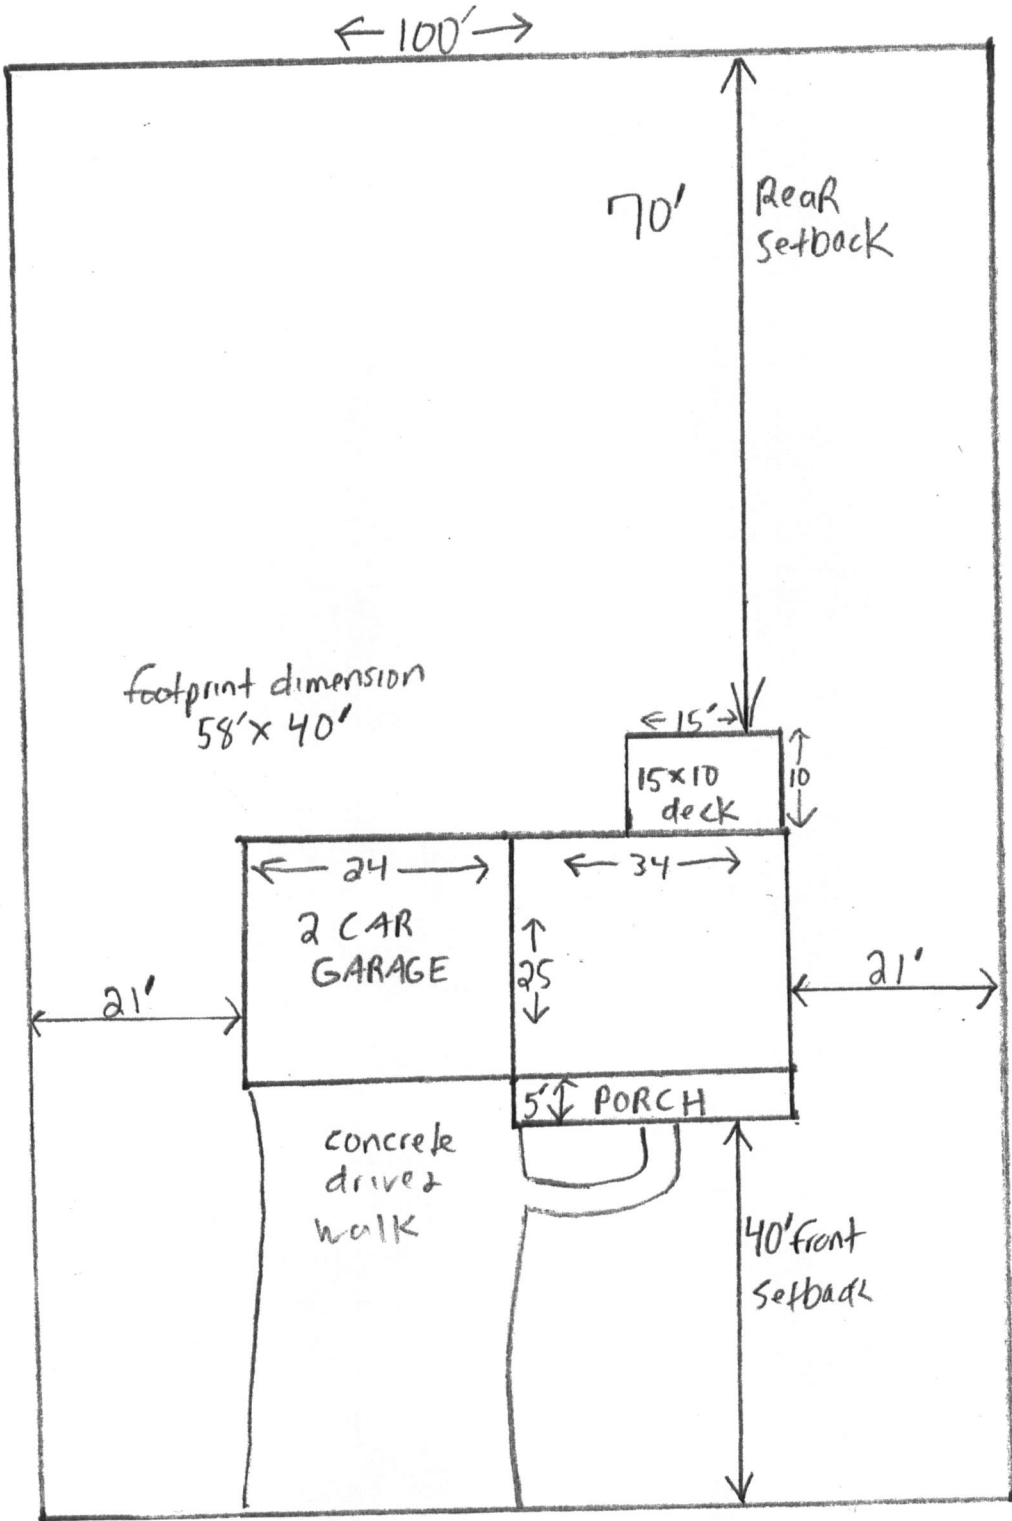 100'
70'
Rear
setback
footprint dimension
58' x 40'
15'
15x10
deck
10
24
34
2 CAR
GARAGE
25
21'
21'
5'
PORCH
concrete
drive &
walk
40' front
setback